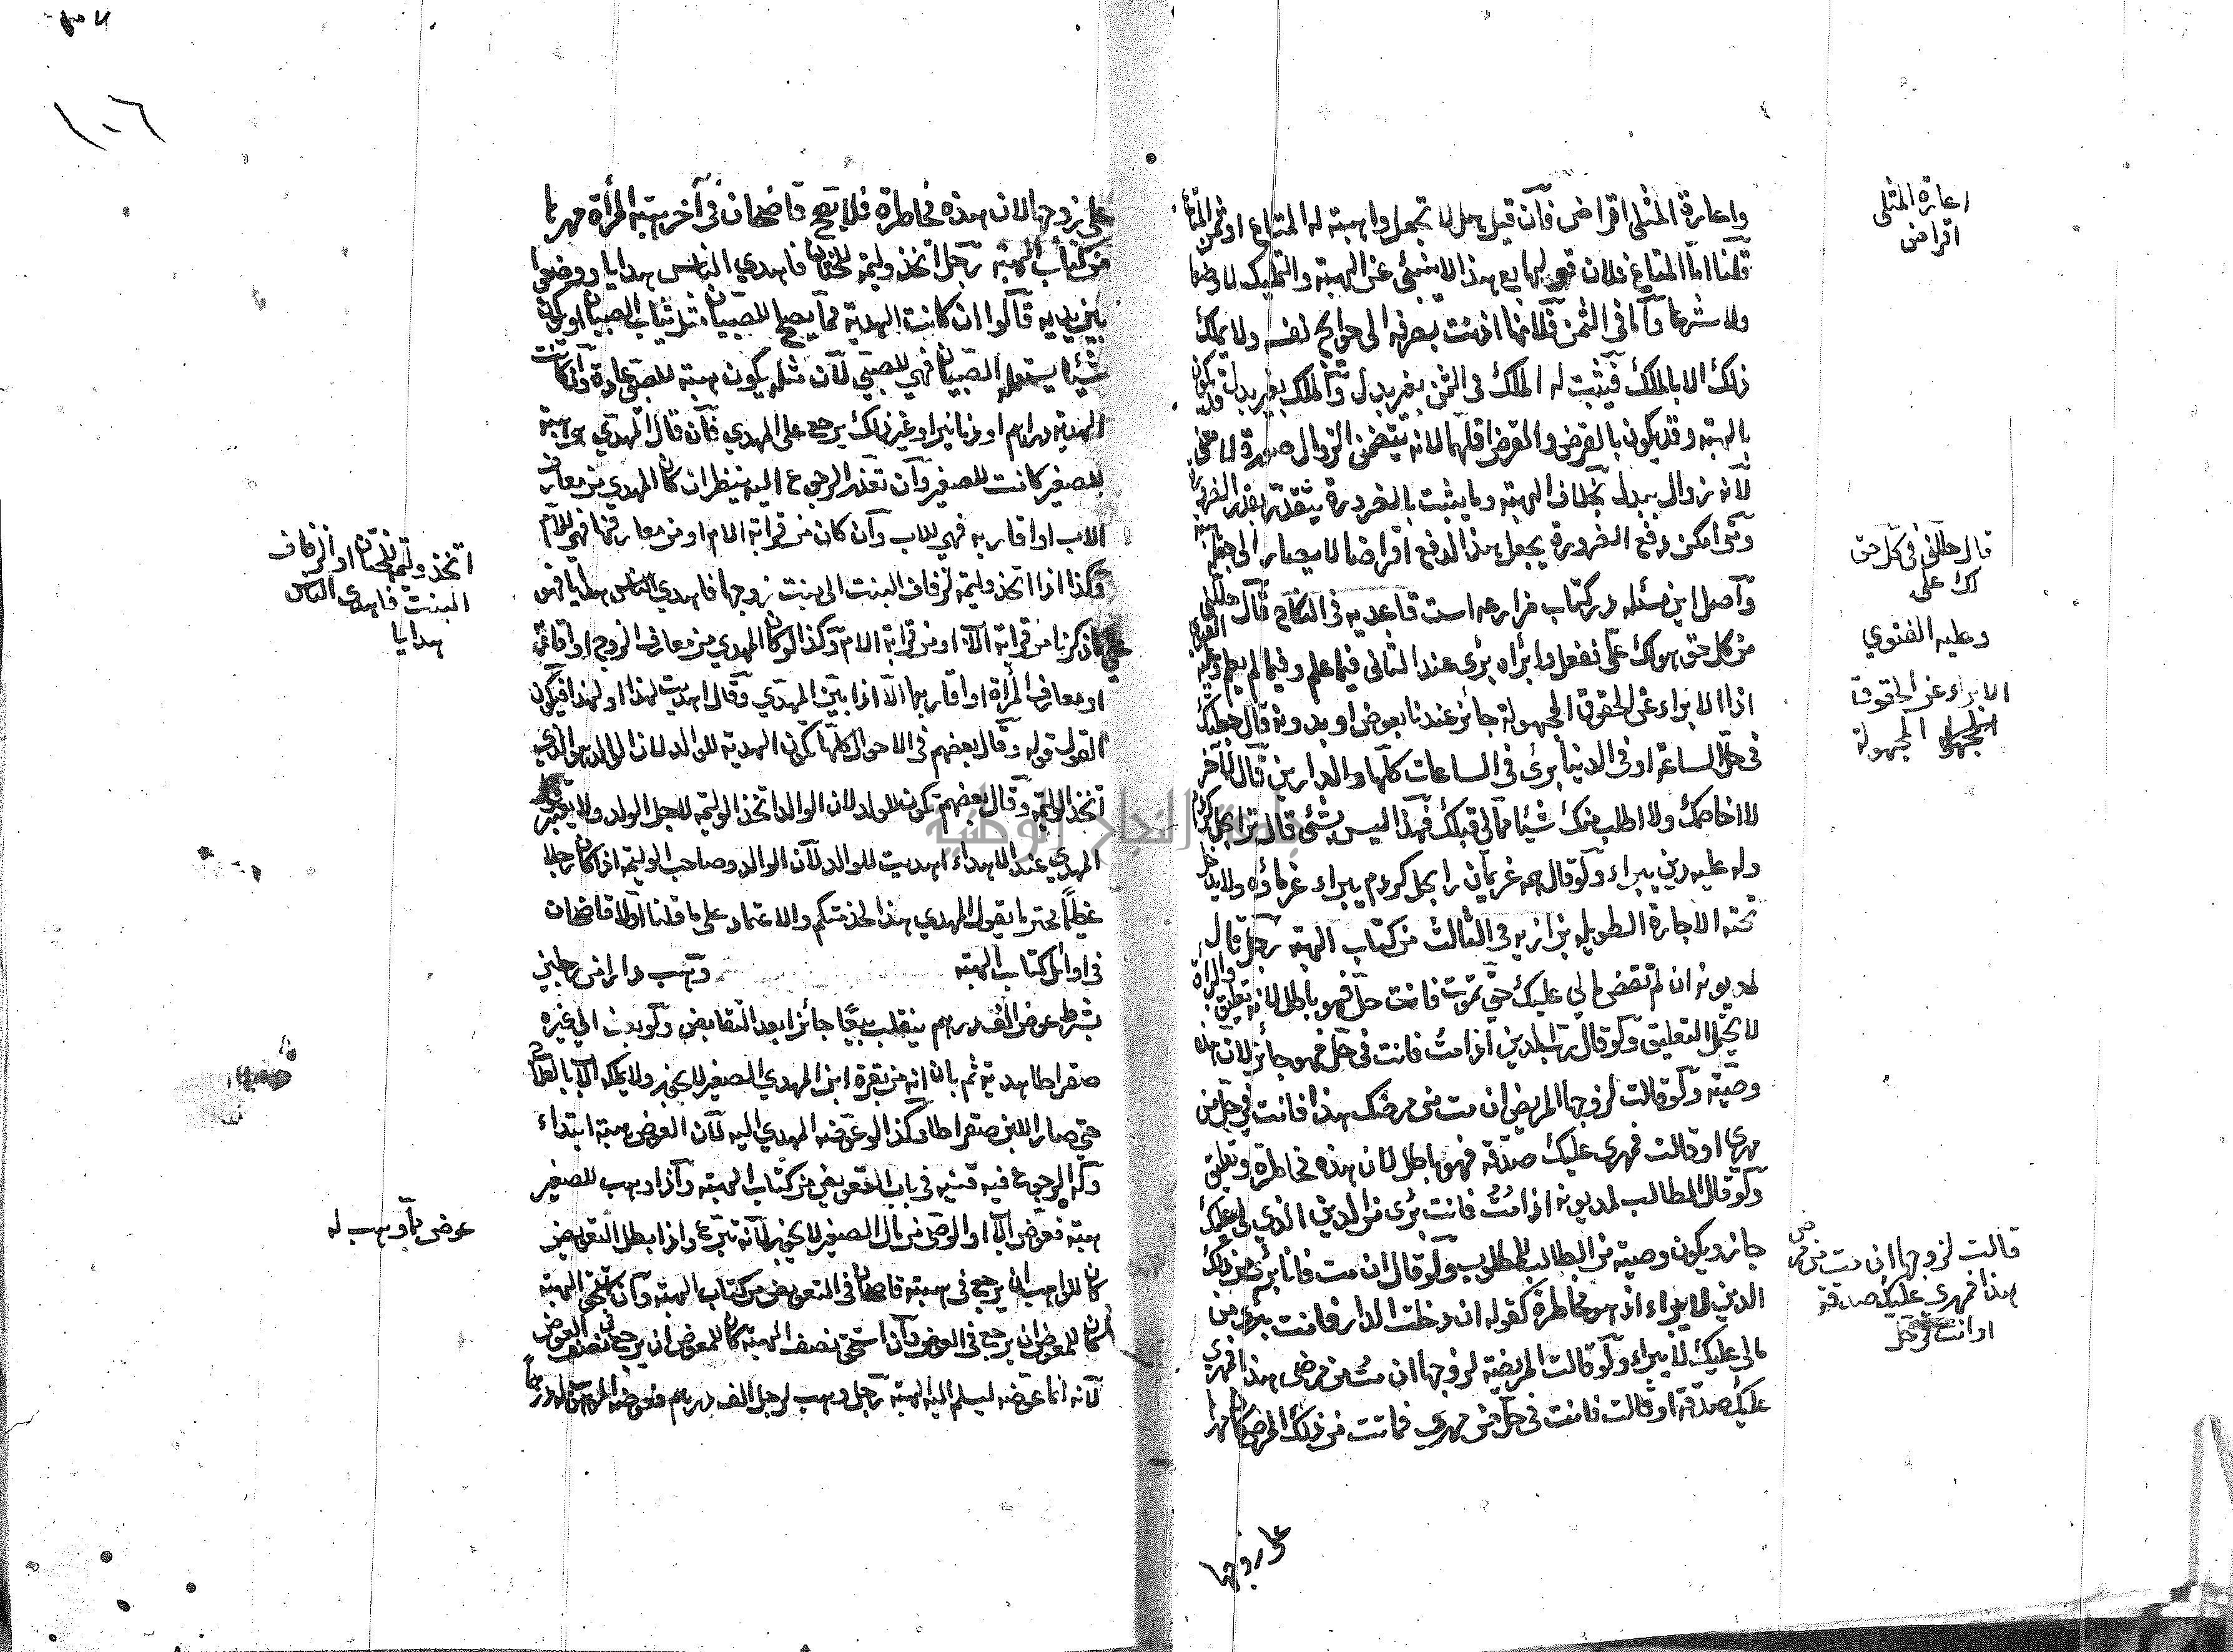 واعارة المثلى اقراض فان قيل هل لا تجعل واهبته له المتاع او ثمن المتاع
قلنا اما المتاع فلان قوله بع هذا لا ينبئ عن الهبة والتمليك لا وضعا
ولا شرعا واما في الثمن فلانها اذنت بصرفه الى حوائج نفسه ولا يملك
ذلك الا بالملك فيثبت له الملك في الثمن بغير بدل والملك بغير بدل قد يكون
بالهبة وقد يكون بالقرض والقرض اقلهما لانه يتضمن الزوال صورة لا معنى
لانه زوال ببدل بخلاف الهبة وما يثبت بالضرورة يتقدر بقدر الضرورة
ومتى امكن دفع الضرورة يجعل هذا الدفع اقراضا لا يصار الى جعله هبة
واصل اين مسئله در كتاب مزارعه است قاعديه في النكاح قال حللني
من كل حق هو لك علي ففعل وابرأه برئ عند الثاني فيما علم وفيما لم يعلم وعليه الفتوى
اذا الابراء عن الحقوق المجهولة جائز عندنا بعوض او بدونه قال جعلتك
في حل الساعة او في الدنيا برئ في الساعات كلها والدارين قال لآخر
لا اخاصمك ولا اطلب منك شيئا مما لي قبلك فهذا ليس بشئ قال ترا بحل كردم
وله عليه دين يبراء ولو قال همه غريمان را بحل كردم يبراء غرماؤه ولا يدخل
تحته الاجارة الطويلة بزازيه في الثالث من كتاب الهبة رجل قال
لمديونه ان لم تقض مالي عليك حتى تموت فانت حل فهو باطل لانه تعليق والبراءة
لا يحتمل التعليق ولو قال رب الدين اذا مت فانت في حل فهو جائز لان هذه
وصية ولو قالت لزوجها المريض ان مت من مرضك هذا فانت في حل من
مهري او قالت فمهري عليك صدقة فهو باطل لان هذه مخاطرة وتعليق
ولو قال الطالب لمديونه اذا مت فانت برئ من الدين الذي لي عليك
جاز ويكون وصية من الطالب للمطلوب ولو قال ان مت فانا برئ من ذلك
الدين لا يبراء اذ هو مخاطرة كقوله ان دخلت الدار فانت برئ من
مالي عليك لا يبراء ولو قالت المريضة لزوجها ان مت من مرضي هذا فمهري
عليك صدقة او قالت فانت في حل من مهري فماتت من ذلك المرض كان مهرها
على زوجها
اعارة المثلى
اقراض
قال حللني في كل حق
لك علي
وعليه الفتوى
الابراء عن الحقوق
المجهولة
قالت لزوجها ان مت من مرضي
هذا فمهري عليك صدقة
او انت في حل
١٠٦
على زوجها لان هذه مخاطرة فلا يصح قاضيخان في آخر هبة المرأة مهرها
من كتاب الهبة رجل اتخذ وليمة للختان فاهدى الناس هدايا ووضعوا
بين يديه قالوا ان كانت الهدية مما يصلح للصبيان مثل ثياب الصبيان او يكون
شيئا يستعمله الصبيان فهي للصبي لان مثله يكون هبة للصبي عادة وان كانت
الهدية دراهم او دنانير او غير ذلك يرجع على المهدي فان قال المهدي هو هبة
للصغير كانت للصغير وان تعذر الرجوع اليه ينظر ان كان المهدي من معارف
الاب او اقاربه فهي للاب وان كان من قرابة الام او من معارفها فهي للام
وكذا اذا اتخذ وليمة لزفاف البنت الى بيت زوجها فاهدى الناس هدايا فهو
على ما ذكرنا من قرابة الاب او من قرابة الام وكذا لو كان المهدي من معارف الزوج او اقاربه
او معارف المرأة او اقاربها الا اذا بين المهدي وقال اهديت لهذا او لهذا فيكون
القول قوله وقال بعضهم في الاحوال كلها تكون الهدية للوالد لان الوالد هو الذي
اتخذ الوليمة وقال بعضهم تكون للولد لان الوالد اتخذ الوليمة لاجل الولد ولا يعتبر قول
المهدي عند الاهداء اهديت للوالد لان الوالد وصاحب الوليمة اذا كان رجلا
عظيما محترما يقول المهدي هذا لخدمتكم والاعتماد على ما قلنا اولا قاضيخان
في اوائل كتاب الهبة وهب دارا من رجلين
بشرط عوض الف درهم ينقلب بيعا جائزا بعد التقابض ولو بعث الى غيره
هدية ثم بان انه من بقرة ابن المهدي الصغير لا يجوز ولا يملكه الاب
حتى صار اللبن وكذا لو عوضه المهدي اليه لان العوض هبة ابتداء
وله الرجوع فيه قنيه في باب التعويض من كتاب الهبة واذا وهب للصغير
هبة فعوض الاب او الوصي من مال الصغير لا يجوز لانه تبرع واذا بطل التعويض
كان للواهب ان يرجع في هبته قاضيخان في التعويض من كتاب الهبة وان استحق الهبة
كان للمعوض ان يرجع في العوض وان استحق نصف الهبة كان للمعوض ان يرجع في نصف العوض
لانه انما عوضه ليسلم اليه الهبة رجل وهب لرجل الف درهم فعوضه الموهوب له درهما
اتخذ وليمة للختان او لزفاف
البنت فاهدى الناس
هدايا
عوض ما وهب له
جامعة النجاح الوطنية